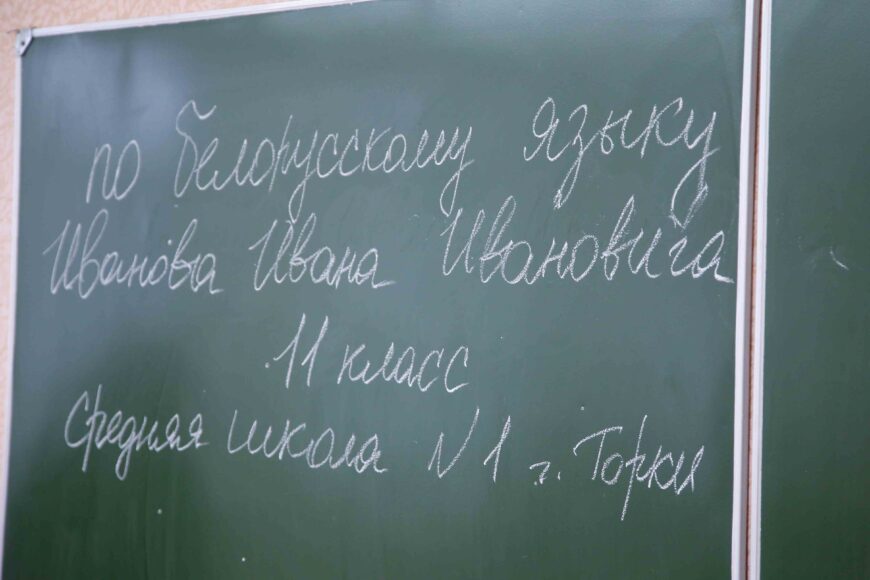 по белорусскому языку
Иванова Ивана Ивановича
11 класс
Средняя школа N 1 г. Горки